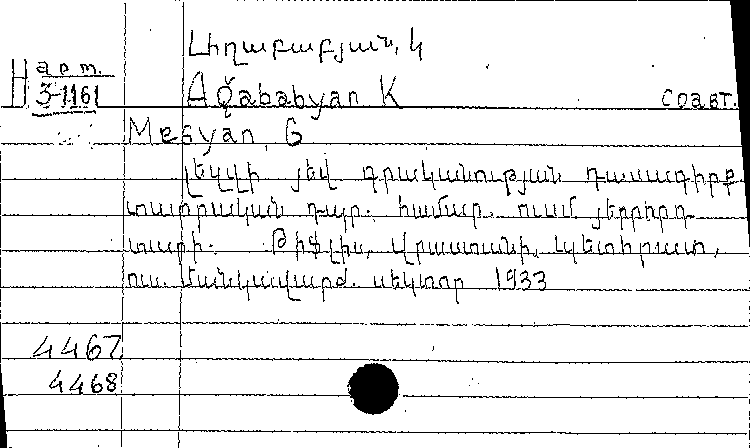 Աղաբաբյան, Կ
H арт.
3-1161
Aǧababyan K соавт.
Mesyan, G
լեզվի յեվ գրականության դասագիրք
տարրական դպր. համար. ուսմ յերրորդ
տարի. Թիֆլիս, Վրաստանի, Պետհրատ,
ուս. Մանկավարժ. սեկտոր 1933
4467
4468